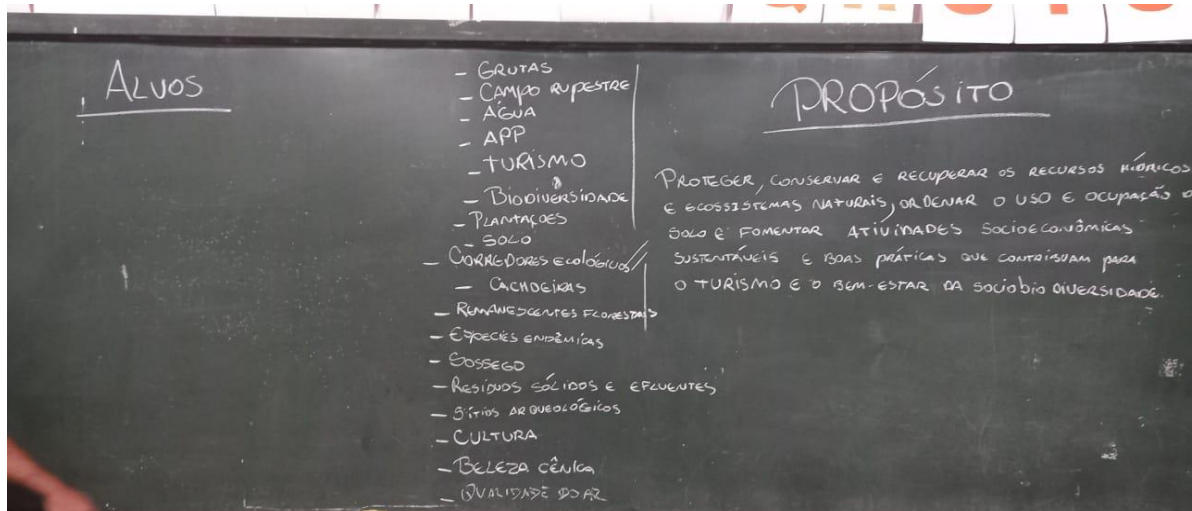 ALVOS
- GRUTAS
- CAMPO RUPESTRE
- ÁGUA
- APP
- TURISMO
- BIODIVERSIDADE
- PLANTAÇÕES
- SOLO
- CORREDORES ECOLÓGICOS
- CACHOEIRAS
- REMANESCENTES FLORESTAIS
- ESPÉCIES ENDÊMICAS
- SOSSEGO
- RESÍDUOS SÓLIDOS E EFLUENTES
- SÍTIOS ARQUEOLÓGICOS
- CULTURA
- BELEZA CÊNICA
- QUALIDADE DO AR
PROPÓSITO
PROTEGER, CONSERVAR E RECUPERAR OS RECURSOS HÍDRICOS
E ECOSSISTEMAS NATURAIS, ORDENAR O USO E OCUPAÇÃO
SOLO E FOMENTAR ATIVIDADES SOCIOECONÔMICAS
SUSTENTÁVEIS E BOAS PRÁTICAS QUE CONTRIBUAM PARA
O TURISMO E O BEM-ESTAR DA SOCIOBIODIVERSIDADE.